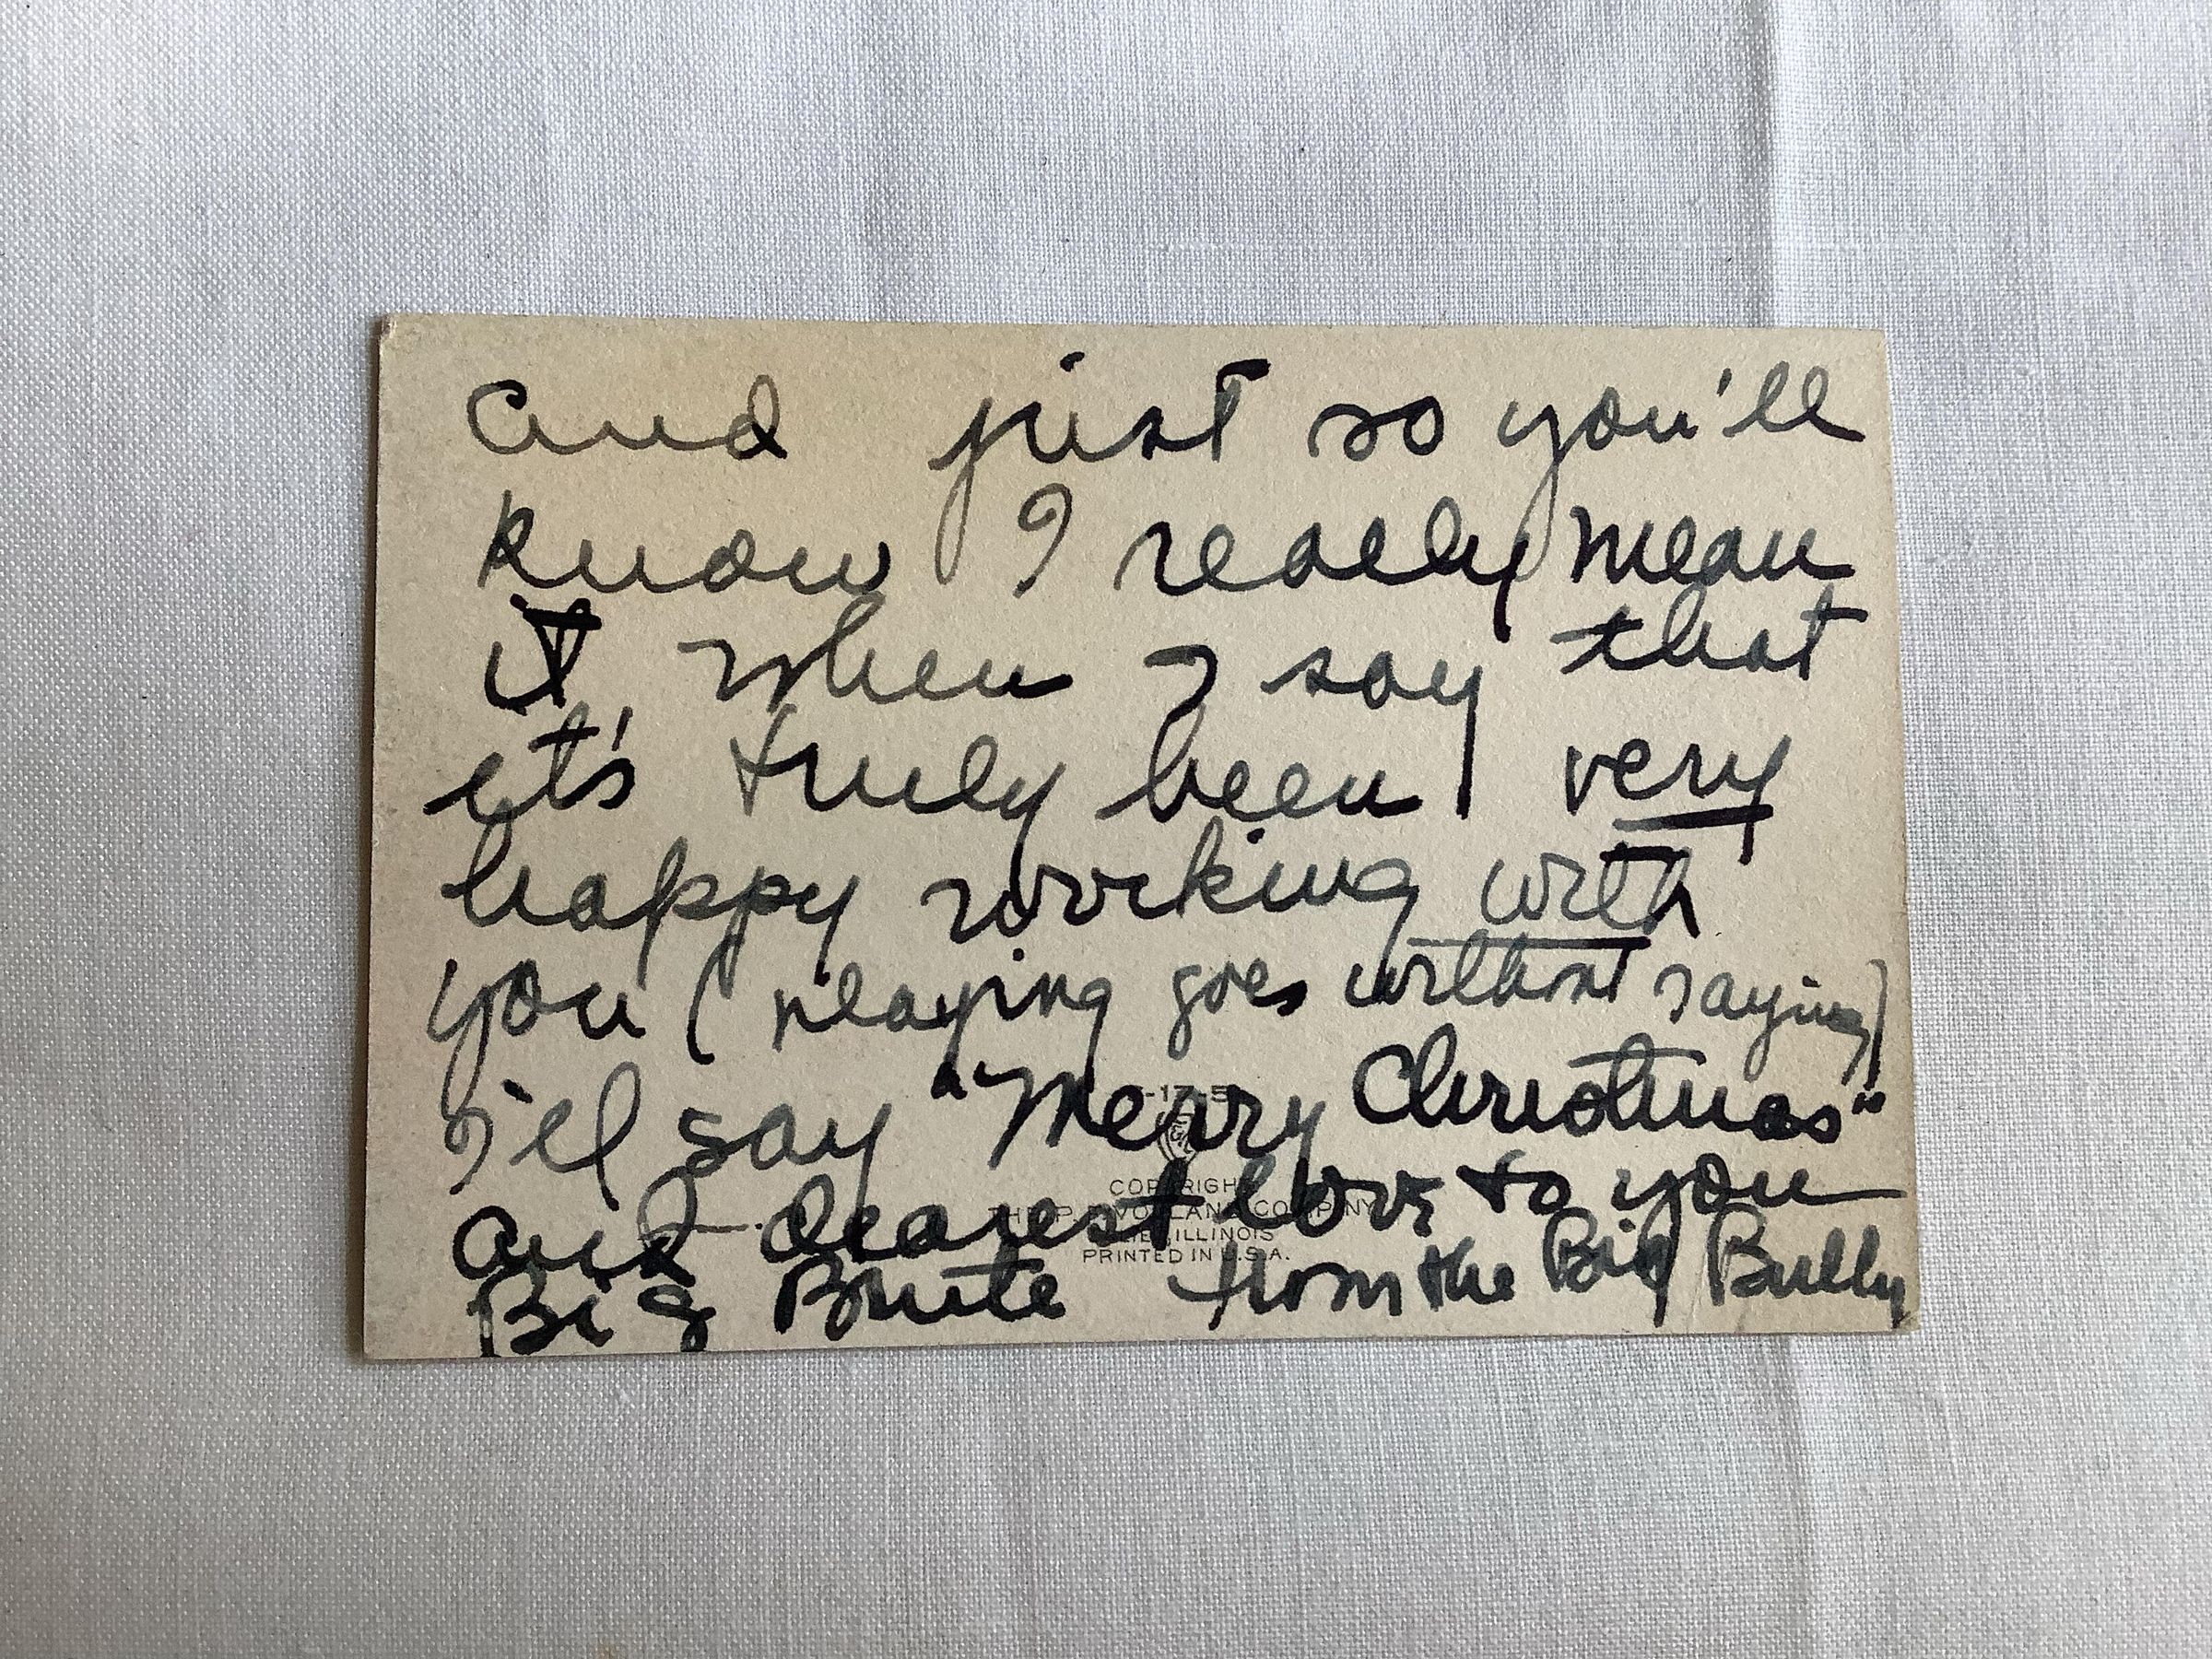 and just so you'll
know I really mean
it when I say that
it's truly been very
happy working with
you (playing goes without saying)
I'll say "Merry Christmas"
and dearest love to you
Big Brute from the Big Bully
COPYRIGHT
THE P. F. VOLLAND COMPANY
JOLIET, ILLINOIS
PRINTED IN U.S.A.